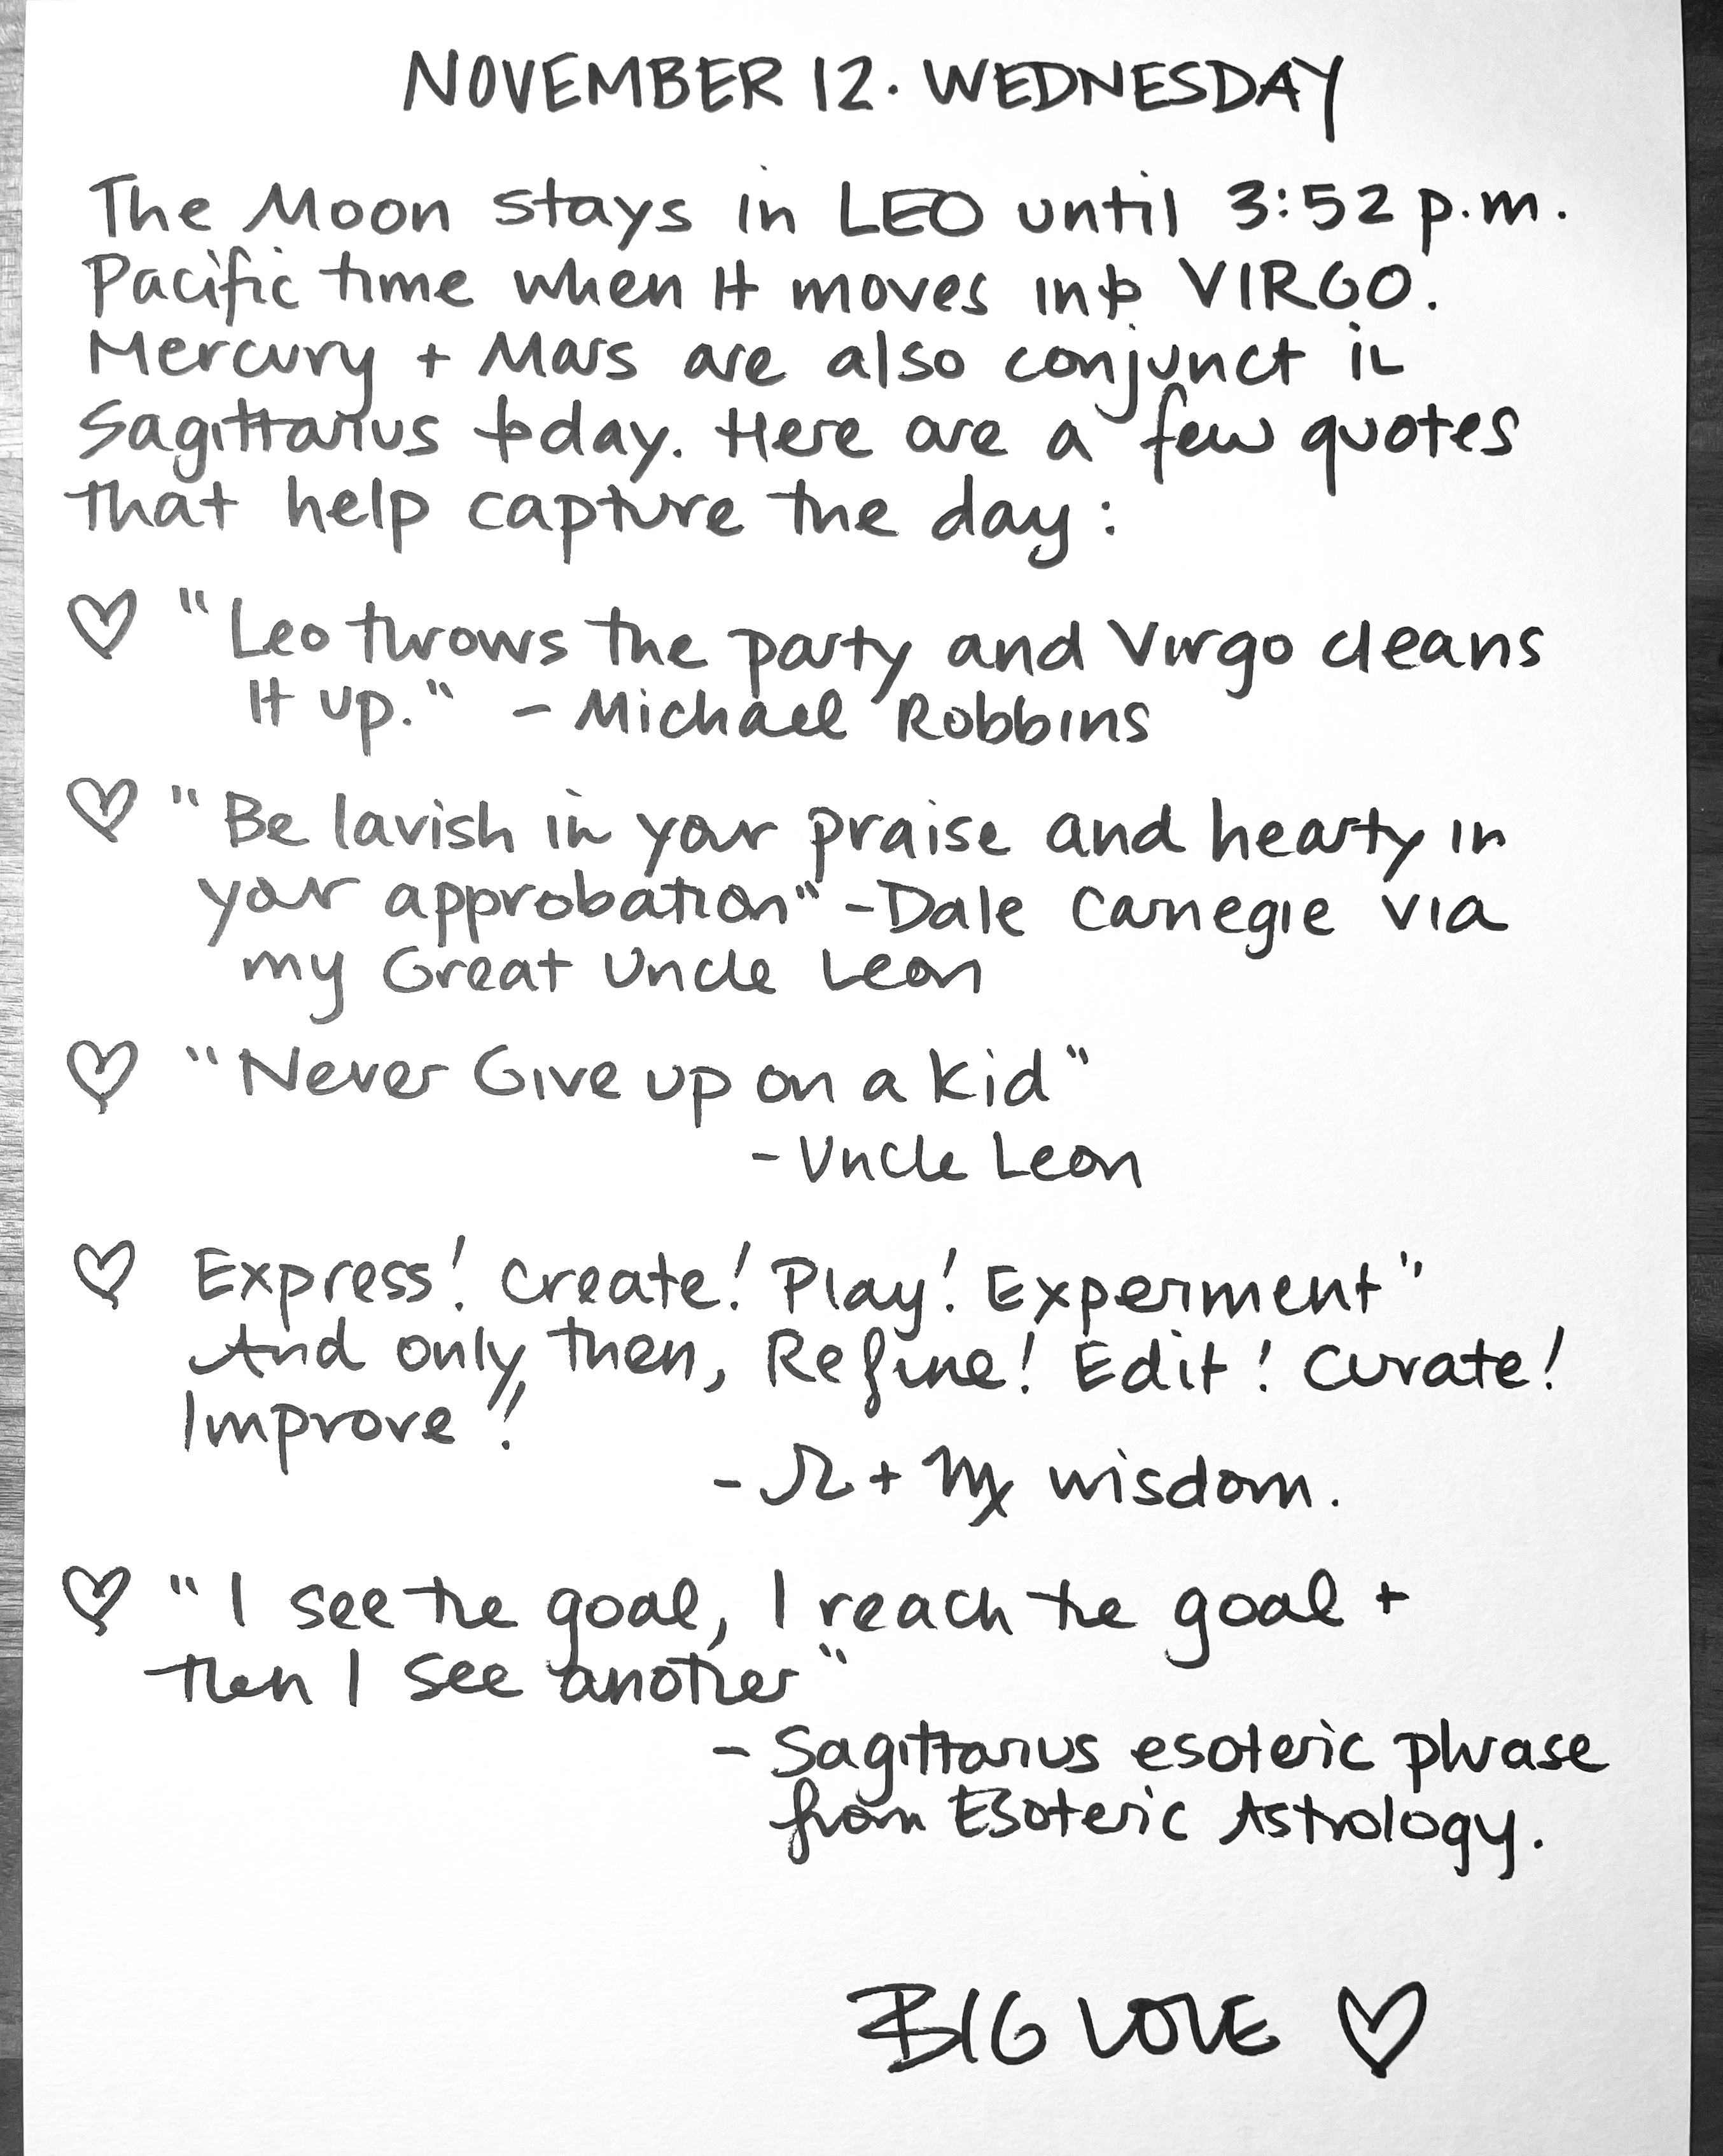 NOVEMBER 12. WEDNESDAY
The Moon stays in LEO until 3:52 p.m.
Pacific time when it moves into VIRGO.
Mercury + Mars are also conjunct in
Sagittarius today. Here are a few quotes
that help capture the day:
♡ "Leo throws the party and Virgo cleans
it up." - Michael Robbins
♡ "Be lavish in your praise and hearty in
your approbation" - Dale Carnegie via
my Great Uncle Leon
♡ "Never Give up on a kid"
- Uncle Leon
♡ Express! Create! Play! Experiment"
And only, then, Refine! Edit! Curate!
Improve!!
- ♌ + ♍ wisdom.
♡ "I see the goal, I reach the goal +
then I see another"
- Sagittarius esoteric phrase
from Esoteric Astrology.
BIG LOVE ♡